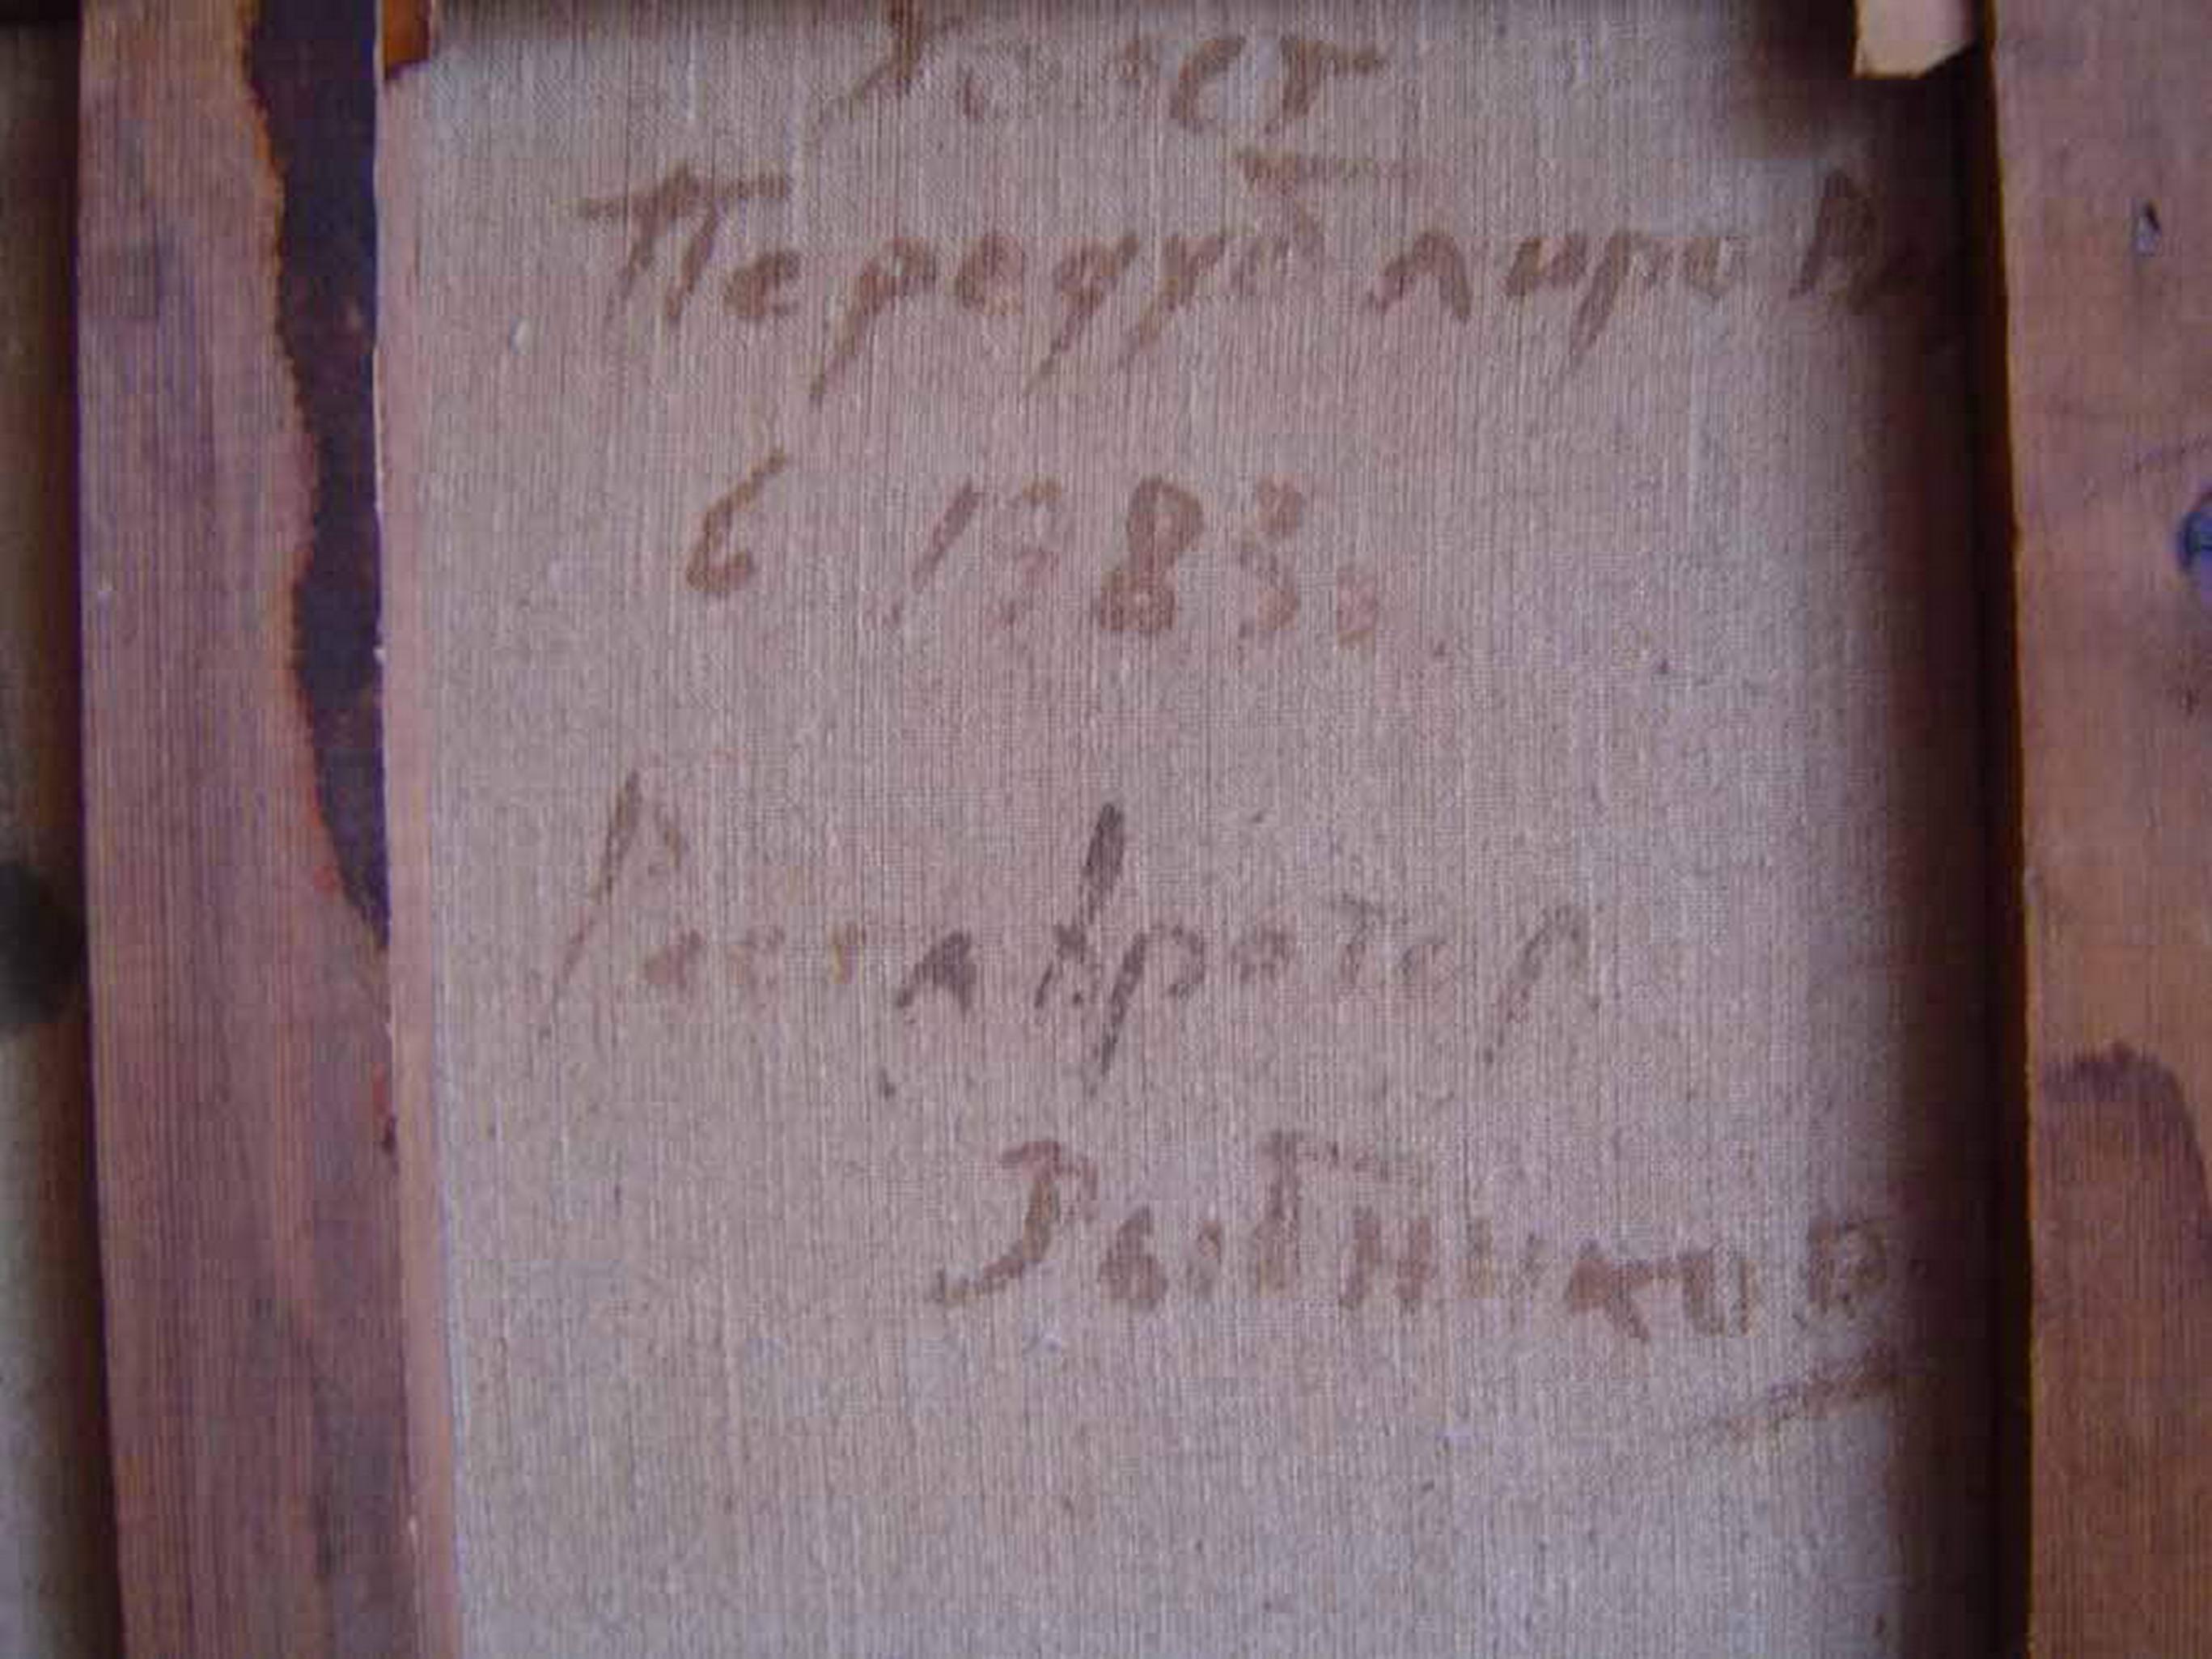 Холст
Передублиров
в 1983г.
Реставратор
Рыбников